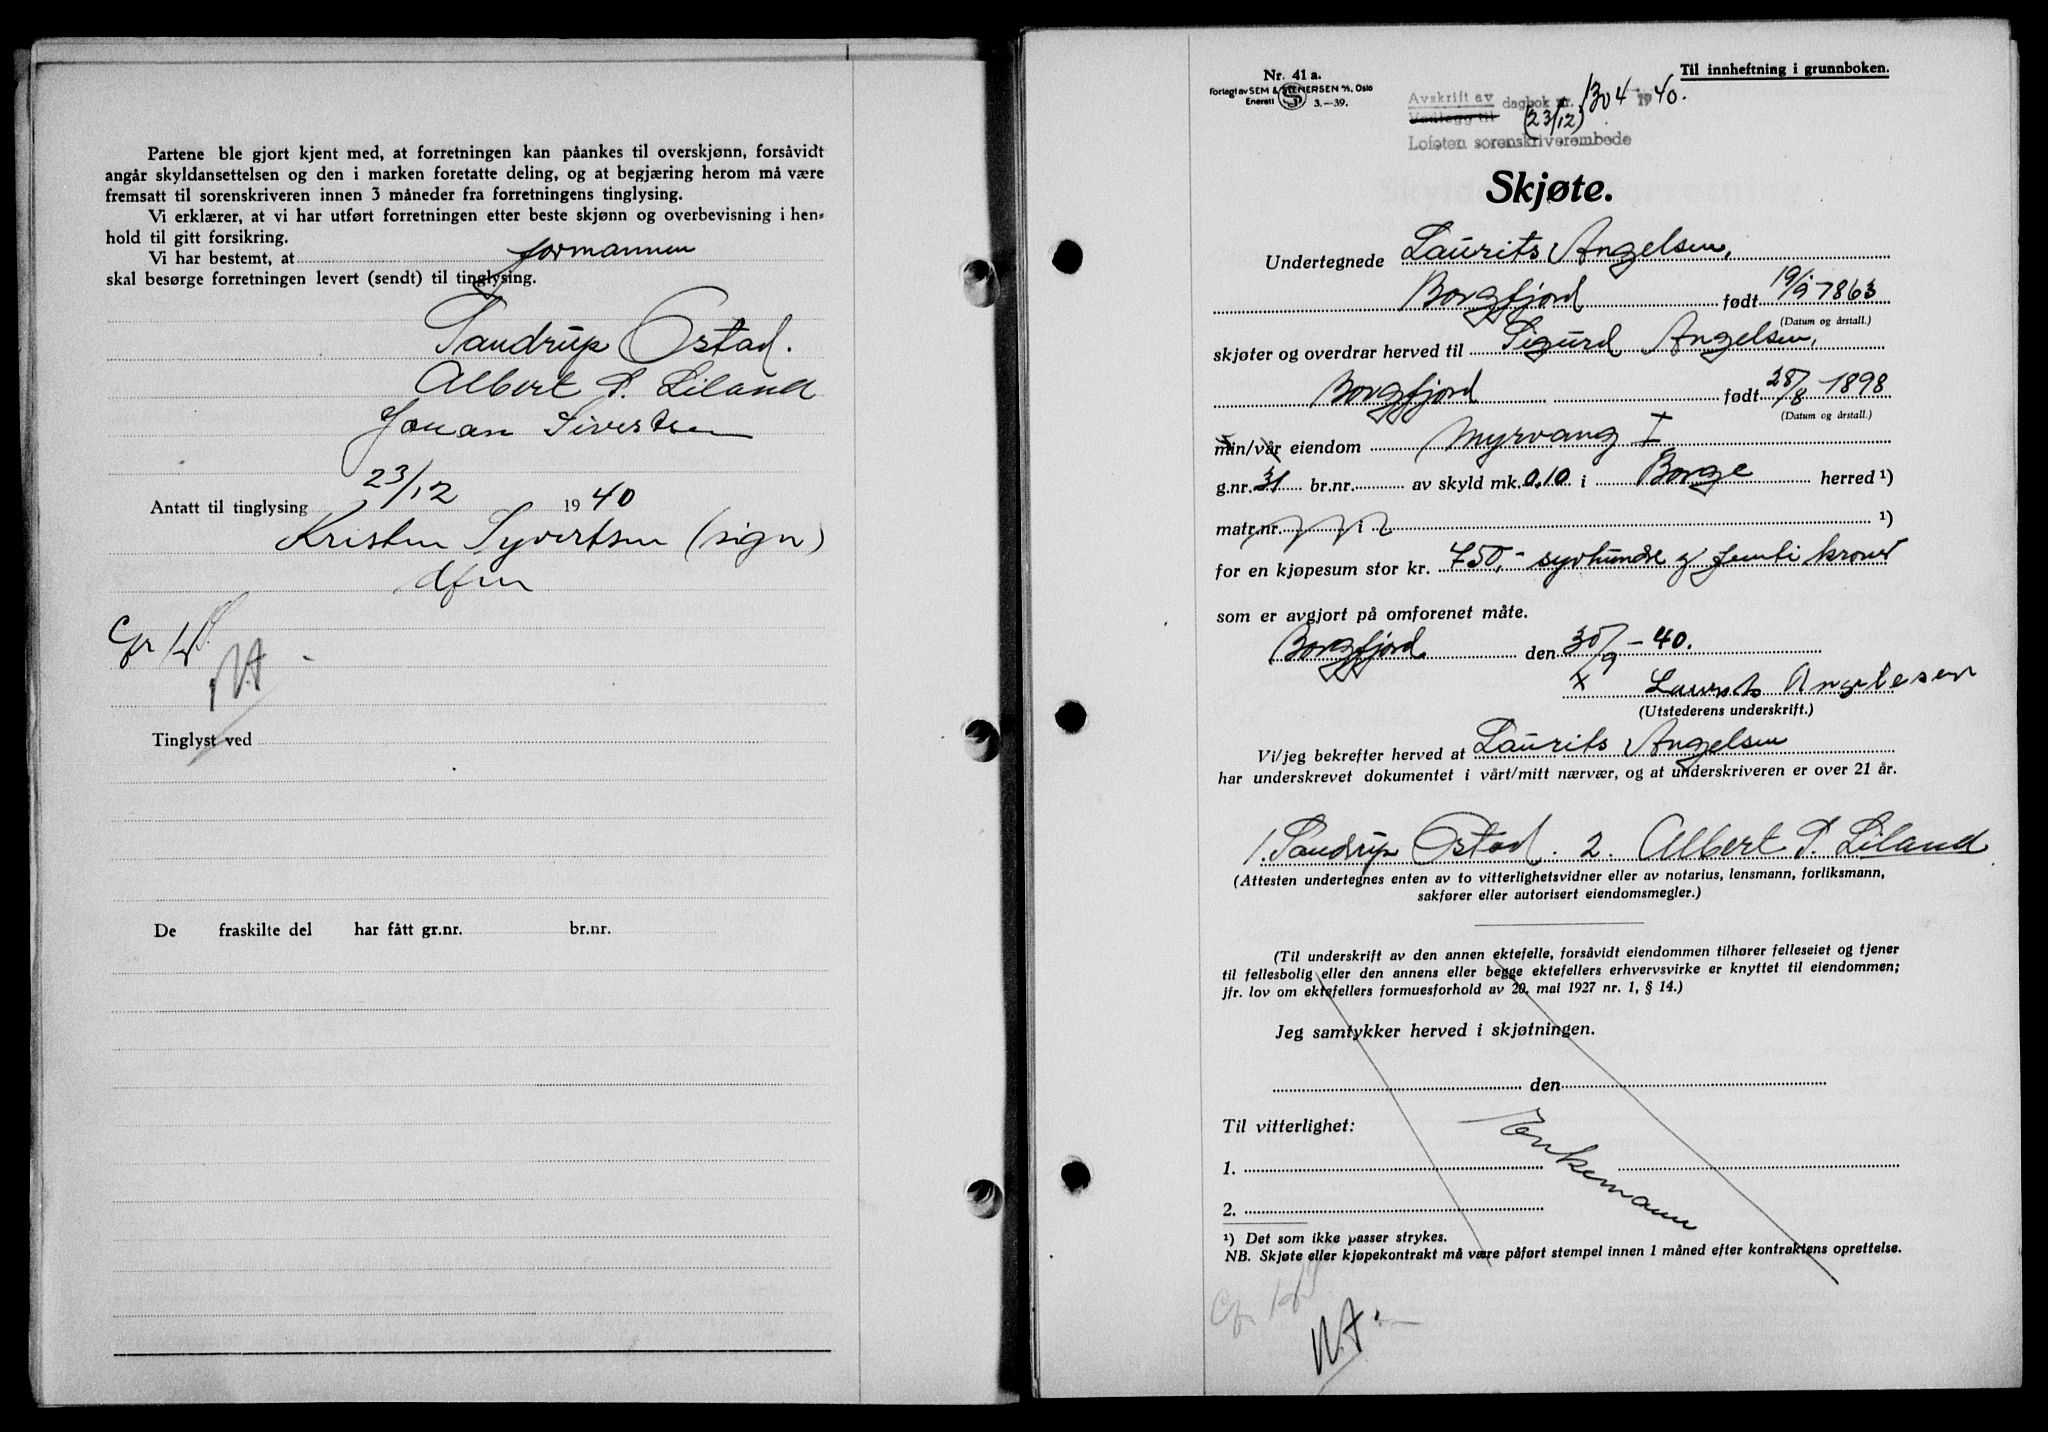 Partene ble gjort kjent med, at forretningen kan påankes til overskjønn, forsåvidt
angår skyldansettelsen og den i marken foretatte deling, og at begjæring herom må være
fremsatt til sorenskriveren innen 3 måneder fra forretningens tinglysing.
Vi erklærer, at vi har utført forretningen etter beste skjønn og overbevisning i hen-
hold til gitt forsikring.
Vi har bestemt, at formannen
skal besørge forretningen levert (sendt) til tinglysing.
Sandrup Ostad.
Albert P. Liland
Johan Sivertsen
Antatt til tinglysing 23/12 1940
Kristen Syvertsen (sign)
dfm
Tinglyst ved
De fraskilte del har fått gr.nr. br.nr.
Til innheftning i grunnboken.
Nr. 41 a.
Forlagt av SEM & STENERSEN A/S, Oslo
Enerett S 3.—39.
Avskrift av
Vedlegg til dagbok nr. 1304 1940.
(23/12)
Lofoten sorenskriverembede
Skjøte.
Undertegnede Laurits Angelsen,
Borgfjord født 19/9 1863
(Datum og årstall.)
skjøter og overdrar herved til Sigurd Angelsen,
Borgfjord født 28/8 1898
(Datum og årstall.)
min/vår eiendom Myrvang I
g.nr. 31 br.nr. av skyld mk. 0.10 i Borge herred ¹)
matr.nr. i ¹)
for en kjøpesum stor kr. 750,- syvhundre og femti kroner
som er avgjort på omforenet måte.
Borgfjord den 30/9 - 40.
x Laurits Angelesen
(Utstederens underskrift.)
Vi/jeg bekrefter herved at Laurits Angelsen
har underskrevet dokumentet i vårt/mitt nærvær, og at underskriveren er over 21 år.
1. Sandrup Ostad. 2. Albert P. Liland
(Attesten undertegnes enten av to vitterlighetsvidner eller av notarius, lensmann, forliksmann,
sakfører eller autorisert eiendomsmegler.)
(Til underskrift av den annen ektefelle, forsåvidt eiendommen tilhører felleseiet og tjener
til fellesbolig eller den annens eller begge ektefellers erhvervsvirke er knyttet til eiendommen;
jfr. lov om ektefellers formuesforhold av 20. mai 1927 nr. 1, § 14.)
Jeg samtykker herved i skjøtningen.
den
Til vitterlighet:
Enkemann
1.
2.
¹) Det som ikke passer strykes.
NB. Skjøte eller kjøpekontrakt må være påført stempel innen 1 måned efter kontraktens oprettelse.